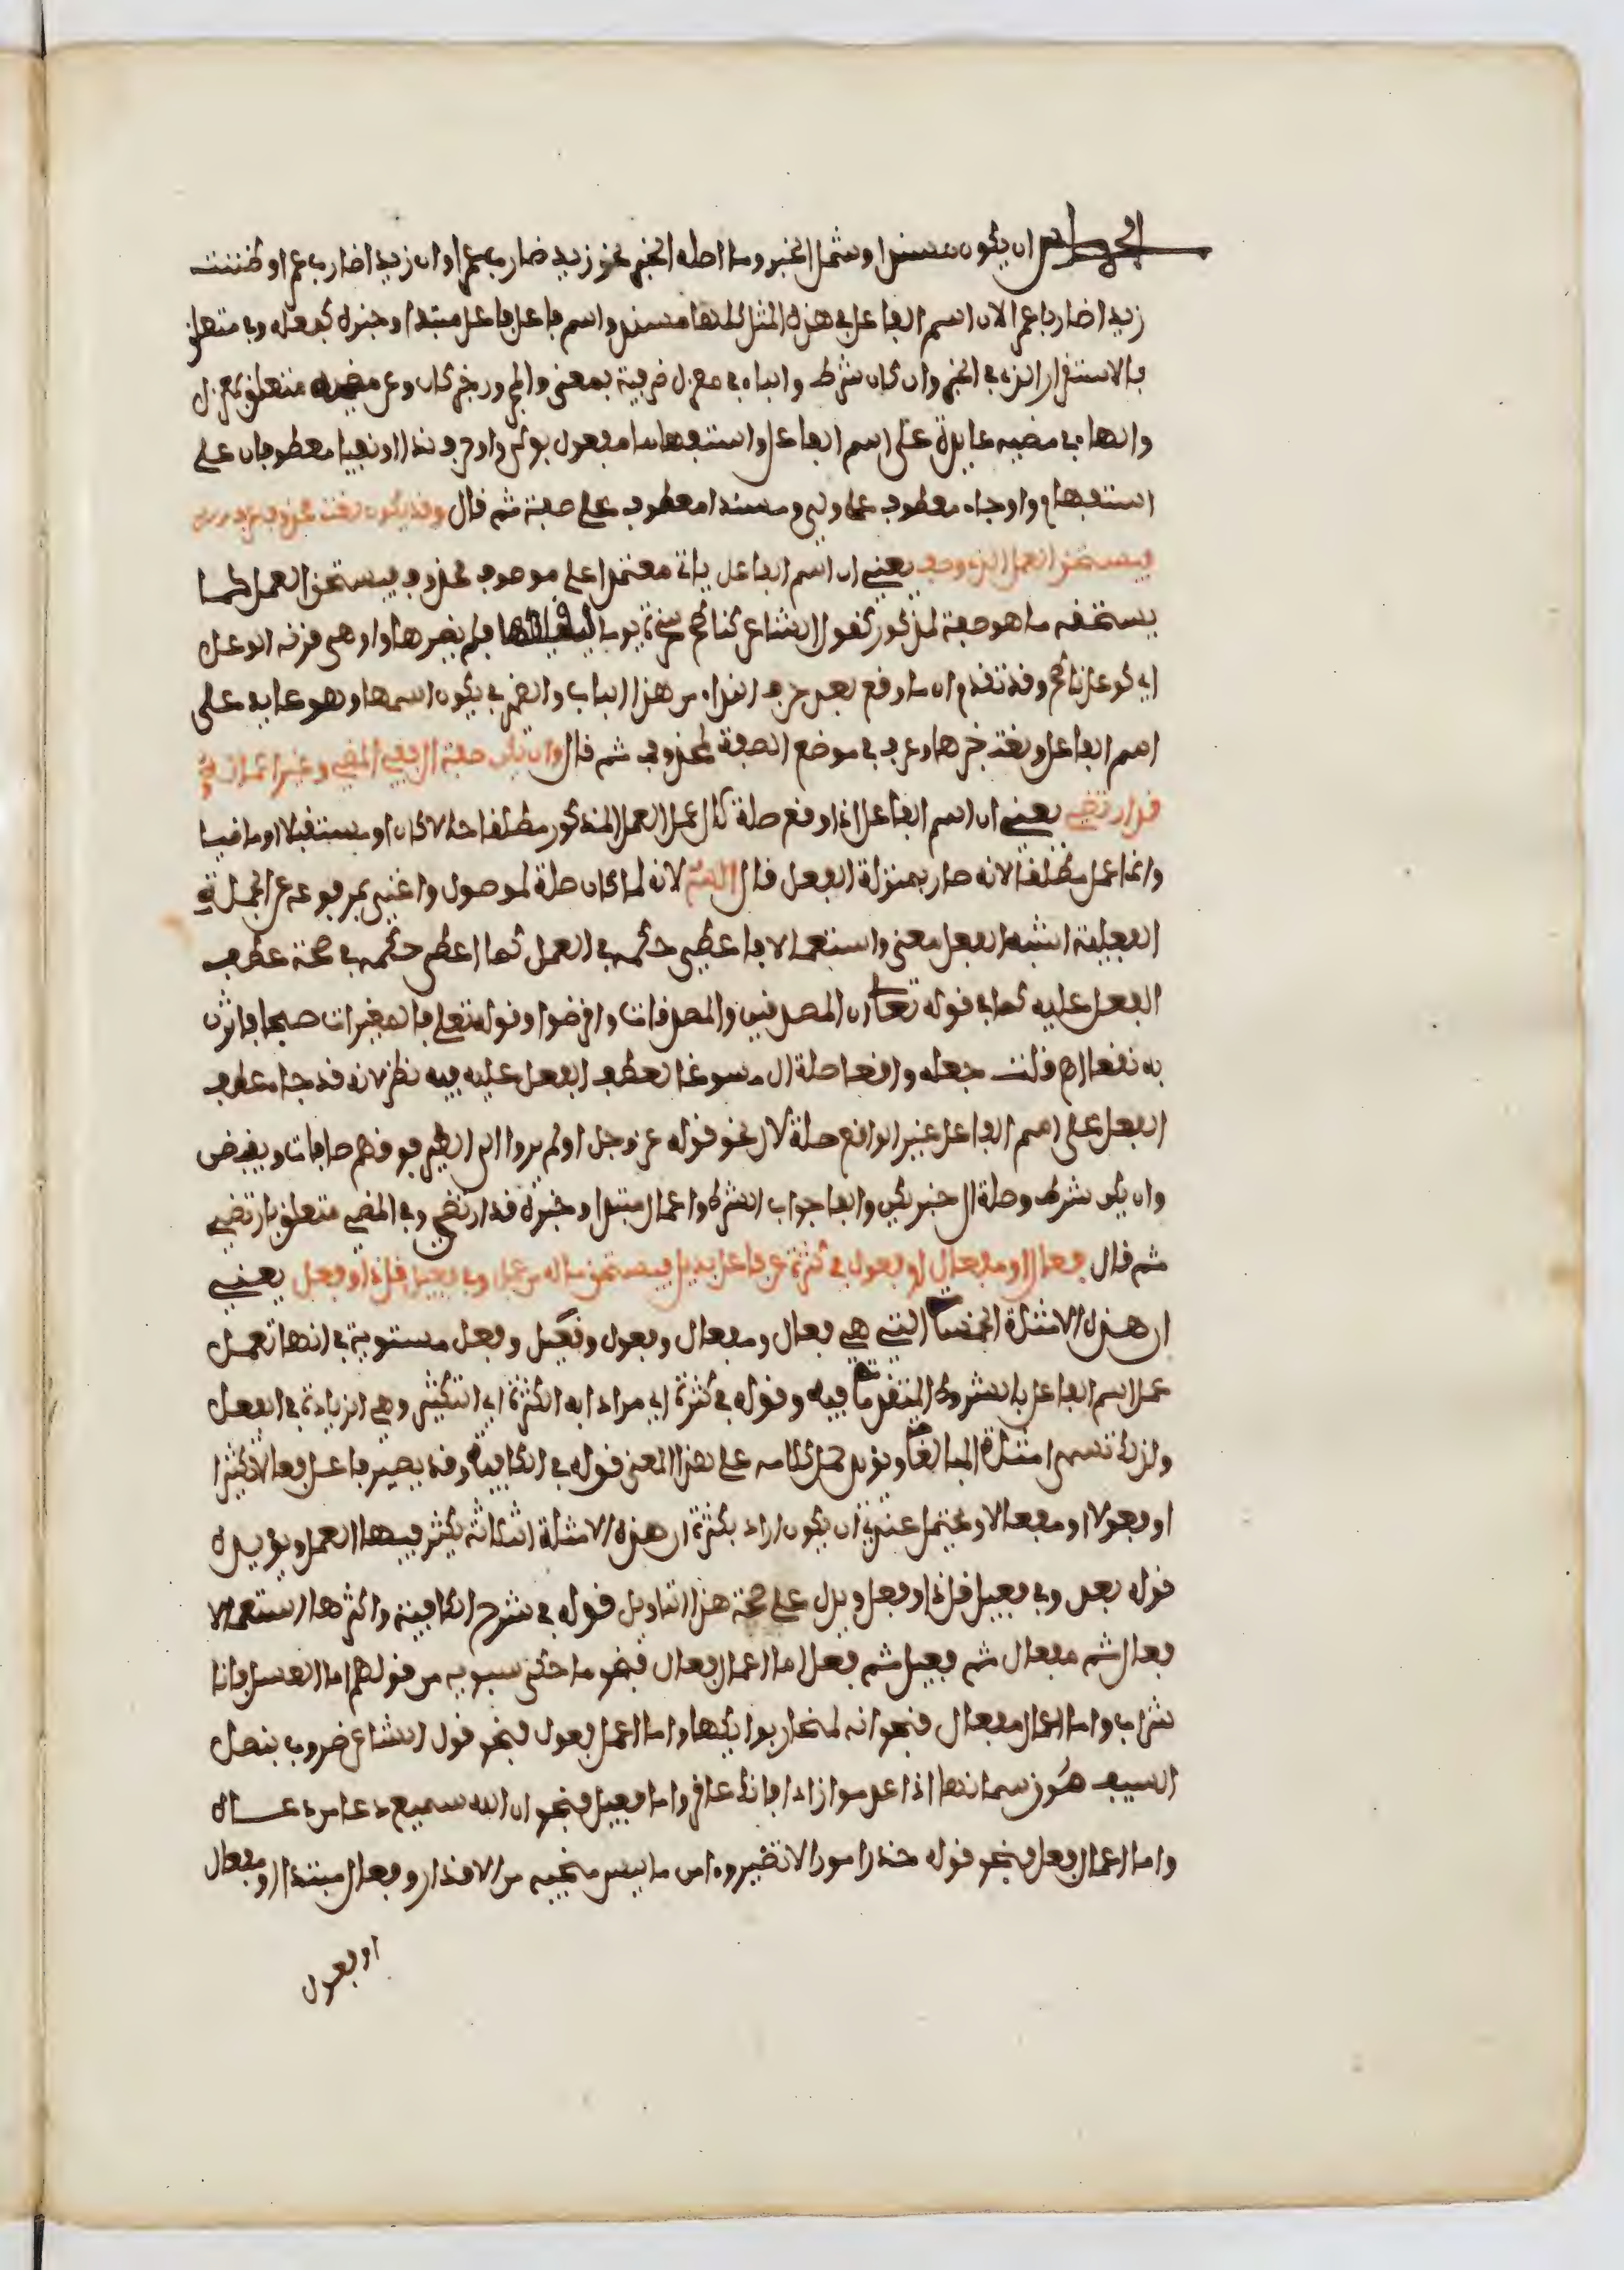 الخامس ان يكون مسندا وشمل الخبر وما اصله الخبر نحو زيد ضارب عمرا وان زيدا ضارب عمرا وظننت
زيدا ضاربا عمرا لان اسم الفاعل في هذه المثل كلها مسند واسم فاعل فاعل مبتدا وخبره كفعله وفي متعلق
بالاستقرار الذي في الخبر وان كان شرط والباء في معزل ظرفية بمعنى في والمجرور خبر كان وعن مضيه متعلق بمعزل
والهاء في مضيه عائدة على اسم الفاعل واستفهاما مفعول بولي واو حرف ندا او نفيا معطوفان على
استفهام واو جاء معطوف على ولي ومسندا معطوف على صفة ثم قال وقد يكون نعت محذوف عرف
فيستحق العمل الذي وصف يعني ان اسم الفاعل ياتي معتمدا على موصوف محذوف فيستحق العمل كما
يستحقه ما هو صفة لمذكور كقول الشاعر كناطح صخرة يوما ليفلقها فلم يضرها واوهى قرنه الوعل
اي كوعل ناطح وقد تقدم ان ما وقع بعد حرف النداء من هذا الباب والضمير في يكون اسمها وهو عايد على
اسم الفاعل ونعت خبرها وعرف في موضع الصفة لمحذوف ثم قال وان يكن صلة ال ففي المضي وغيره اعماله
قد ارتضي يعني ان اسم الفاعل اذا وقع صلة لال عمل العمل المذكور مطلقا حالا كان او مستقبلا او ماضيا
وانما عمل مطلقا لانه صار بمنزلة الفعل قال لانه لما كان صلة لموصول واغنى بمرفوعه عن الجملة
الفعلية اشبه الفعل معنى واستعمالا فاعطي حكمه في العمل كما اعطي حكمه في صحة عطف
الفعل عليه كما في قوله تعالى ان المصدقين والمصدقات واقرضوا وقوله تعلى فالمغيرات صبحا فاثرن
به نقعا اه قلت جعله واقعا صلة ال مسوغا لعطف الفعل عليه فيه نظر لانه قد جا عطف
الفعل على اسم الفاعل غير الواقع صلة لال نحو قوله عز وجل اولم يروا الى الطير فوقهم صافات ويقبضن
وان يكن شرط وصلة ال خبر يكن والفا جواب الشرط واعماله مبتدا وخبره قد ارتضي وفي المضي متعلق بارتضي
ثم قال فعال او مفعال او فعول في كثرة عن فاعل بديل فيستحق ماله من عمل وفي فعيل قل ذا وفعل يعني
ان هذه الامثلة الخمسة التي هي فعال ومفعال وفعول وفعيل وفعل مستوية في انها تعمل
عمل اسم الفاعل بالشروط المتقدمة فيه وقوله في كثرة اي مرادا به الكثرة اي التكثير وهي الزيادة في الفعل
ولذلك تسمى امثلة المبالغة ويؤيد حمل كلامه على هذا المعنى قوله في الكافية وقد يصير فاعل فعالا لكثرا
او فعولا او مفعالا ويحتمل عندي ان يكون اراد بكثرة ان هذه الامثلة الثلاثة يكثر فيها العمل ويؤيده
قوله بعد وفي فعيل قل ذا وفعل ويدل على صحة هذا التاويل قوله في شرح الكافية واكثرها استعمالا
فعال ثم مفعال ثم فعيل ثم فعل اما اعمال فعال فنحو ما حكى سيبويه من قولهم اما العسل فانا
شراب واما اعمال مفعال فنحو انه لمنحار بوائكها واما اعمال فعول فنحو قول الشاعر ضروب بنصل
السيف سوق سمانها اذا عدموا زادا فانك عاقر واما فعيل فنحو ان الله سميع دعا من دعاه
واما اعمال فعل فنحو قوله حذر امورا لا تضير وءامن ما ليس منجيه من الاقدار وفعال مبتدا او مفعال
او فعول